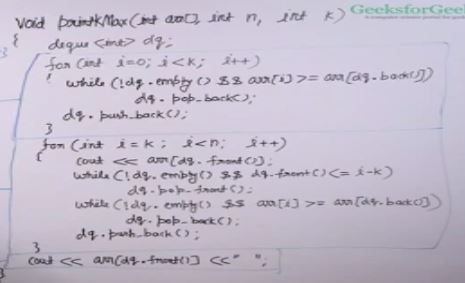 GeeksforGeek
A computer science portal for gee
void printKMax(int arr[], int n, int k)
{
deque <int> dq;
for (int i=0; i<k; i++)
{ while (!dq.empty() && arr[i] >= arr[dq.back()])
dq.pop_back();
dq.push_back();
}
for (int i=k; i<n; i++)
{ cout << arr[dq.front()];
while (!dq.empty() && dq.front() <= i-k)
dq.pop_front();
while (!dq.empty() && arr[i] >= arr[dq.back()])
dq.pop_back();
dq.push_back();
}
cout << arr[dq.front()] << " ";
}